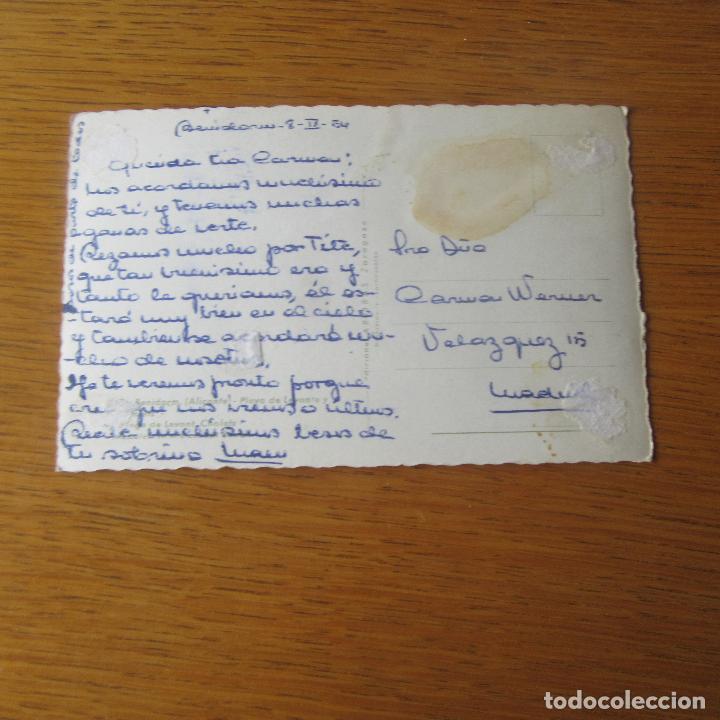 Benidorm-8-IX-54
Querida tia Carma:
Nos acordamos muchísimo
de tí, y tenemos muchas
ganas de verte.
Rezamos mucho por Tité,
que tan buenisimo era y
tanto le queriamos, él es-
tará muy bien en el cielo
y tambien se acordará mu-
cho de nosotros.
Ya te veremos pronto porque
que nos iremos a ultimos.
Recibe muchisimos besos de
tu sobrino
Sra Dña
Carma Werner
Velazquez 115
Madrid
Benidorm. (Alicante) - Playa de Levante y
de Levant. Chalets
todocoleccion